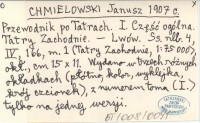 CHMIELOWSKI Janusz 1907 r.
Przewodnik po Tatrach. I. Część ogólna.
Tatry Zachodnie. – Lwów. Ss. 4,
IV, 166, m. 1 (Tatry Zachodnie, 1:75 000),
okł., cm 15 x 11. Wydano w trzech różnych
okładkach (płótno, kolor, wyklejka,
krój czcionek), z numerem tomu (I.)
tylko na jednej wersji.